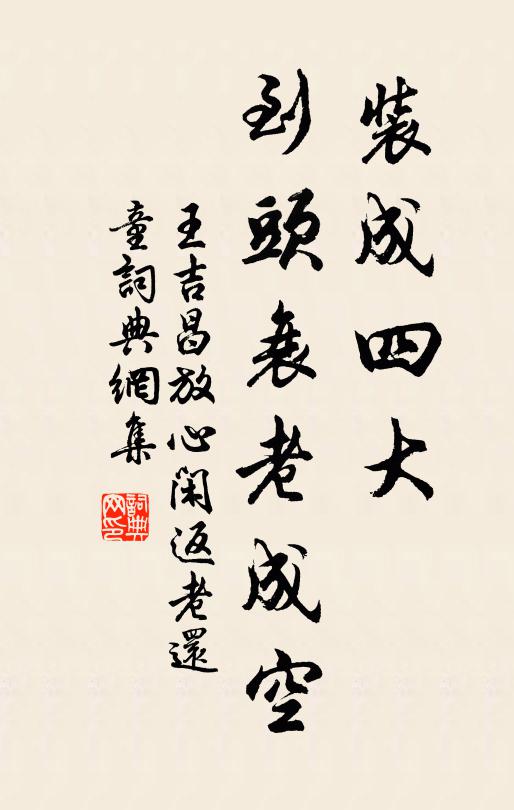 裝成四大
到頭衰老成空
王吉昌放心閑返老還
童詞典網集
詞典
网印